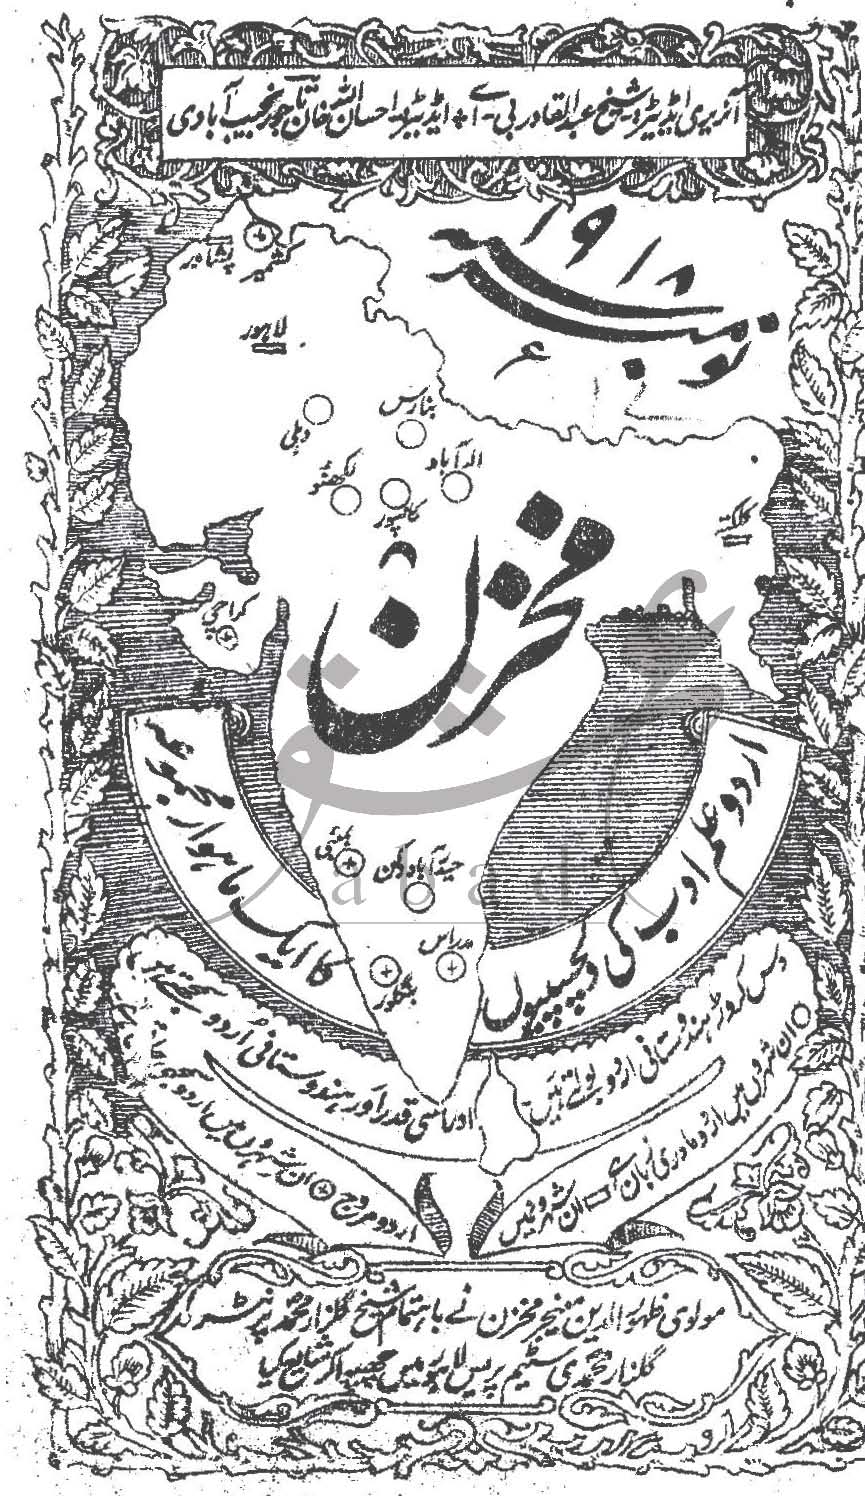 آنریری ایڈیٹر۔ شیخ عبدالقادر بی۔اے + ایڈیٹر۔ احسان اللہ خان تاجور نجیب آبادی
نومبر ۱۹۱۸ء
کشمیر
پشاور
لاہور
بنارس
دہلی
الہ آباد
لکھنؤ
کانپور
کلکتہ
مخزن
کراچی
اردو علم ادب کی دلچسپیوں
کا ایک ماہوار مجموعہ
بمبئی
حیدرآباد دکن
مدراس
بنگلور
دس کروڑ ہندوستانی اردو بولتے ہیں
اور اسی قدر اور ہندوستانی اردو سمجھتے ہیں
ان شہروں میں اردو مادری زبان ہے
ان شہروں میں
اردو مروج
ان شہروں میں اردو
مولوی ظہورالدین منیجر مخزن نے باہتمام شیخ گلزار محمد پرنٹر
گلزار محمدی سٹیم پریس لاہور میں چھپوا کر شایع کیا
abad